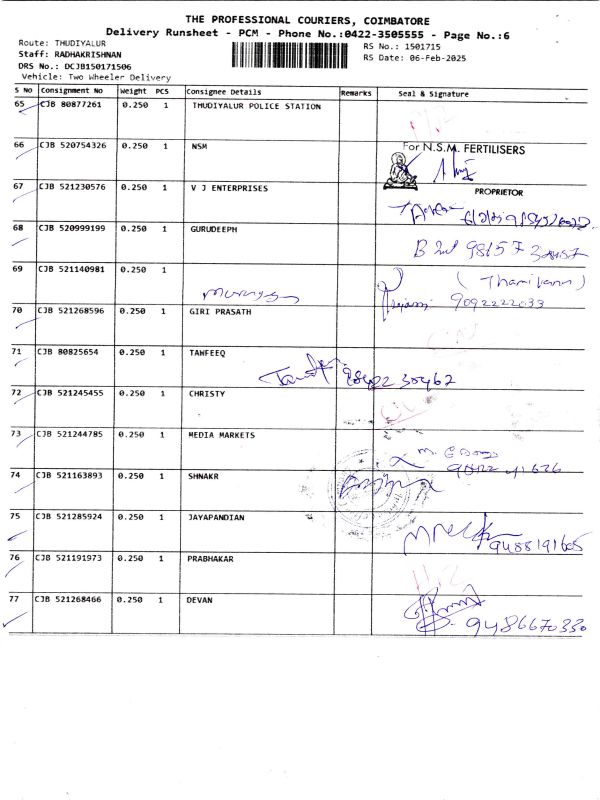 THE PROFESSIONAL COURIERS, COIMBATORE
Delivery Runsheet - PCM - Phone No.:0422-3505555 - Page No.:6
Route: THUDIYALUR
RS No.: 1501715
Staff: RADHAKRISHNAN
RS Date: 06-Feb-2025
DRS No.: DCJB150171506
Vehicle: Two Wheeler Delivery
S No Consignment No Weight PCS Consignee Details Remarks Seal & Signature
65 CJB 80877261 0.250 1 THUDIYALUR POLICE STATION
66 CJB 520754326 0.250 1 NSM
For N.S.M. FERTILISERS
PROPRIETOR
67 CJB 521230576 0.250 1 V J ENTERPRISES
68 CJB 520999199 0.250 1 GURUDEEPH
69 CJB 521140981 0.250 1
9092222033
70 CJB 521268596 0.250 1 GIRI PRASATH
71 CJB 80825654 0.250 1 TAWFEEQ
9842230462
72 CJB 521245455 0.250 1 CHRISTY
73 CJB 521244785 0.250 1 MEDIA MARKETS
74 CJB 521163893 0.250 1 SHNAKR
75 CJB 521285924 0.250 1 JAYAPANDIAN
9488191605
76 CJB 521191973 0.250 1 PRABHAKAR
77 CJB 521268466 0.250 1 DEVAN
9486670330